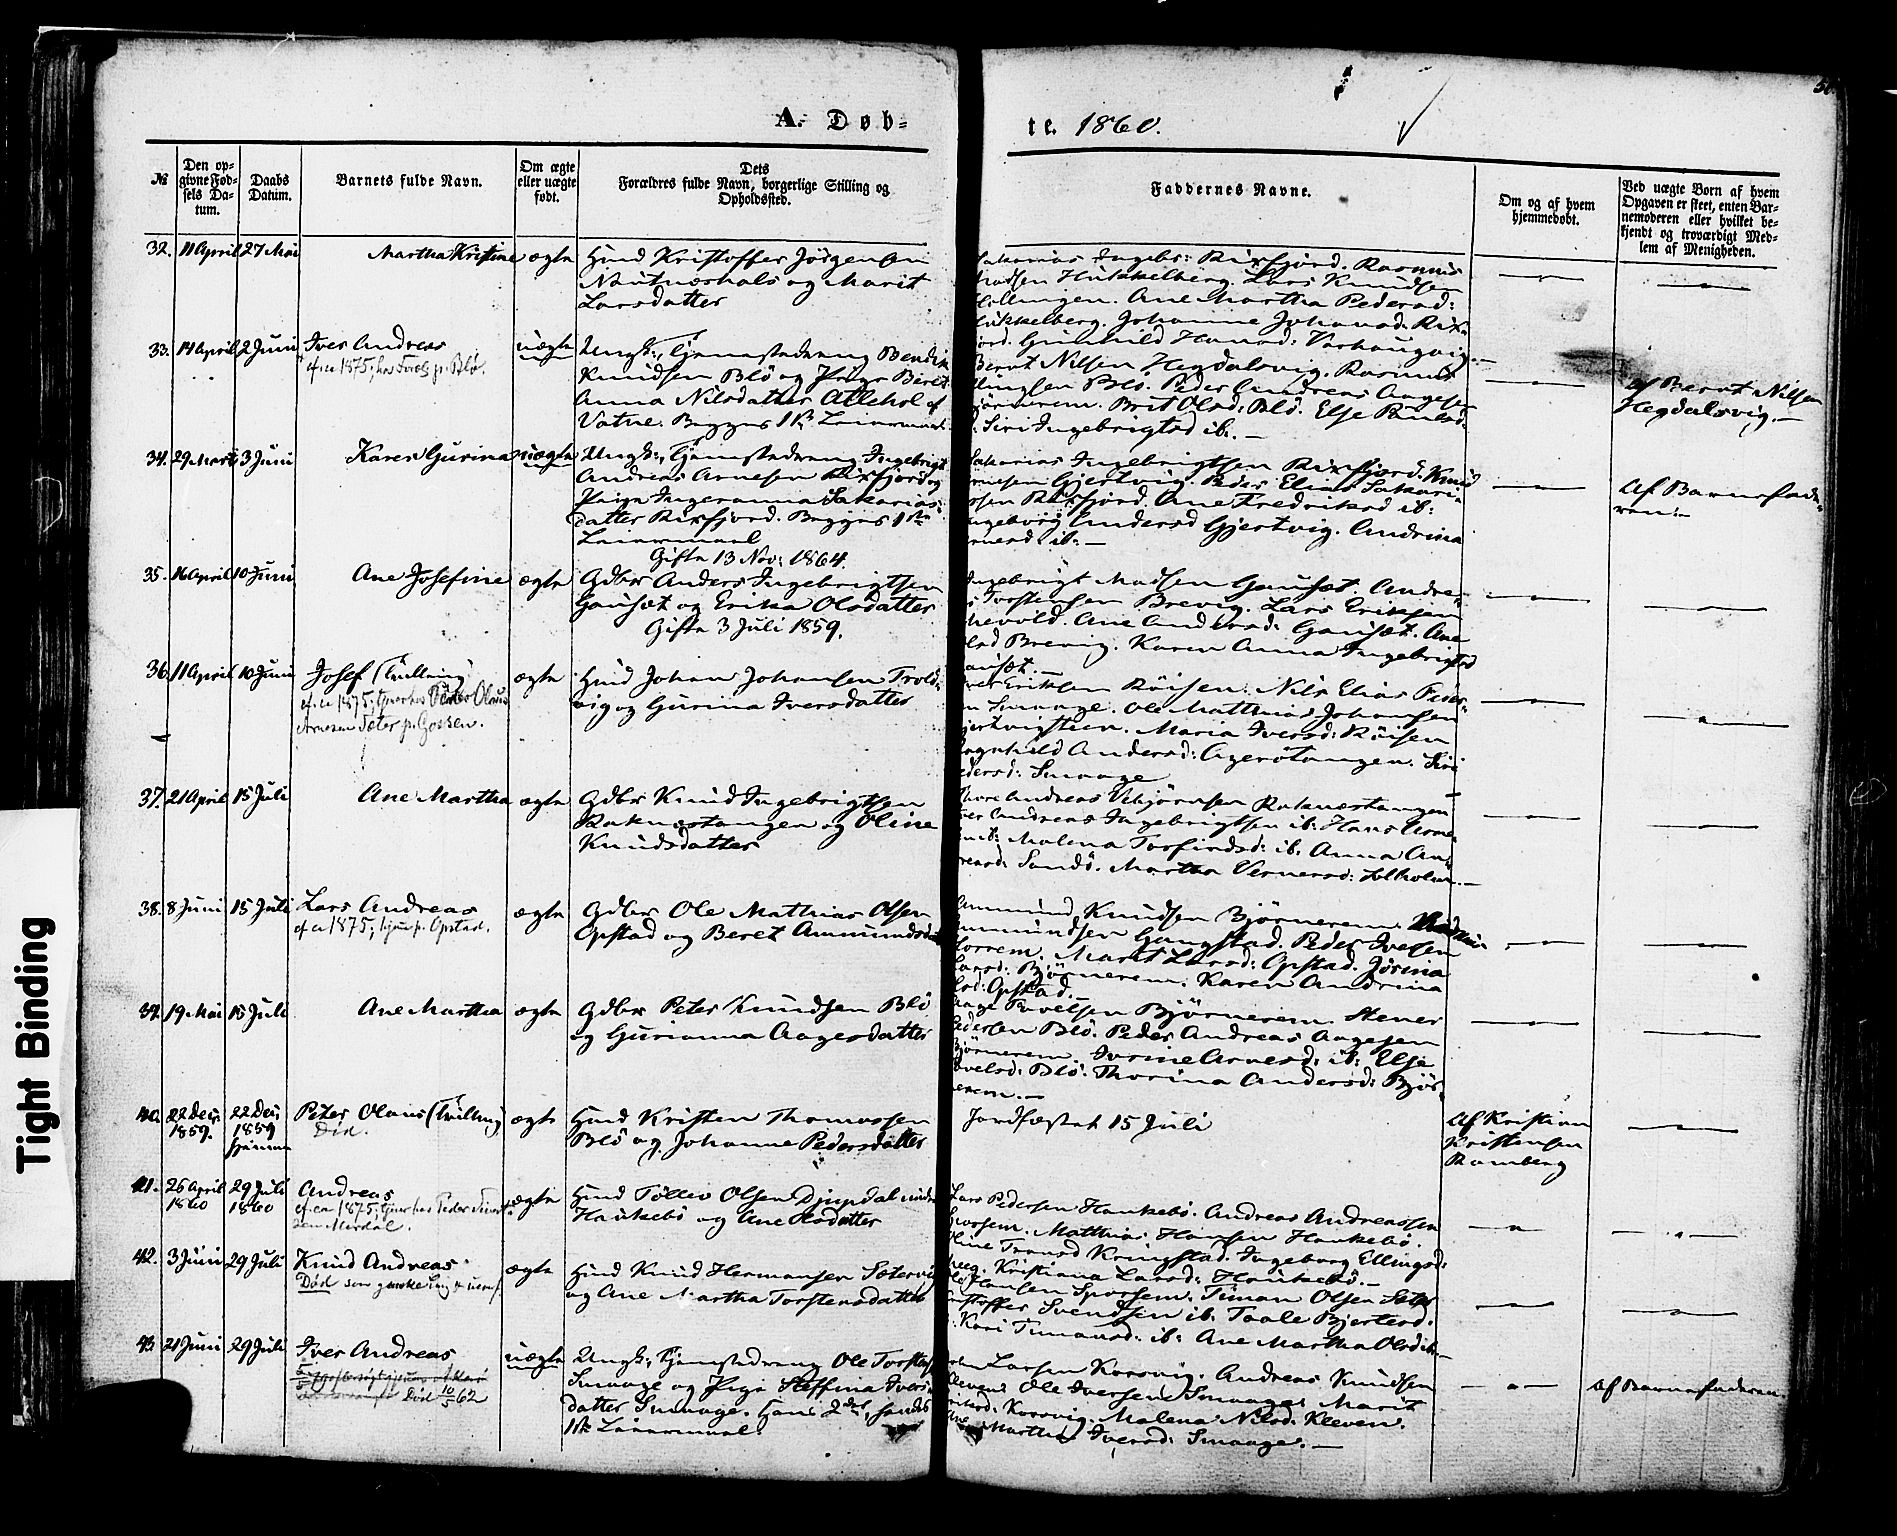 A. Døb-
te. 1860.
50
№
Den op-
givne Fød-
sels Da-
tum.
Daabs
Datum.
Barnets fulde Navn.
Om ægte
eller uægte
født.
Dets
Forældres fulde Navn, borgerlige Stilling og
Opholdssted.
Faddernes Navne.
Om og af hvem
hjemmedøbt.
Ved uægte Børn af hvem
Opgaven er skeet, enten Bar-
nemoderen eller hvilket be-
kjendt og troværdigt Med-
lem af Menigheden.
32. 11 April 27 Mai Martha Kristine ægte
Huusmd Kristoffer Jörgensen
Nautneshals og Marit
Larsdatter
Sakarias Ingebr: Rixfjord. Rasmus
Knudsen Hukkelberg. Lars Knudsen
Hollingen. Ane Martha Pedersd:
Hukkelberg. Johanne Johansd: Rix-
fjord. Gunhild Hansd: Varhaugvig.
33. 14 April 2 Juni Iver Andreas uægte
cf. ca 1875; hos Forels p. Blö.
Ungk:, Tjenestedreng Bendik
Knudsen Blö og Pige Beret
Anna Nilsdatter Allehol af
Vatne. Begges 1ste Leiermaal
Bernt Nilsen Hegdalsvig. Rasmus
Ellingsen Blö. Peder Andreas Aagesen
Björnerem. Brit Olsd: Blö. Else Poulsd:
Siri Ingebrigtsd ib: —
Af Bernt Nilsen
Hegdalsvig. —
34. 29 Marts 3 Juni Karen Gurina uægte
Ungk:, Tjenestedreng Ingebrigt
Andreas Arnesen Rixfjord og
Pige Ingeranna Sakarias-
datter Rixfjord. Begges 1ste
Leiermaal
Gifte 13 Nov: 1864.
Sakarias Ingebrigtsen Rixfjord. Knud
Arnesen Gjertvig. Peder Elias Sakari-
assen Rixfjord. Ane Fredriksd ib:
Ingeborg Andersd Gjertvig. Andrina
Arnesd ib: —
Af Barnefade-
ren. —
35. 16 April 10 Juni Ane Josefine ægte
Gdbr Anders Ingebrigtsen
Gauset og Erika Olsdatter
Gifte 3 Juli 1859.
Ingebrigt Madsen Gauset. Andre-
as Torstensen Brevig. Lars Eriksen
Ane Andersd: Gauset. Ane
Olsd Brevig. Karen Anna Ingebrigtsd
Gauset. —
36. 11 April 10 Juni Josef (Tvilling) ægte
cf. ca 1875; hos Peder Olaus
Arnesen Sæter p. Gossen.
Huusmd Johan Johansen Trols-
vig og Gurina Iversdatter
Iver Eriksen Röisen. Nils Elias Peder-
sen Smaage. Ole Matthias Johansen
Gjertvigsteen. Maria Iversd: Röisen
Ragnhild Andersd: Agerötangen. Siri
Pedersd: Smaage
37. 21 April 15 Juli Ane Martha ægte
Gdbr Knud Ingebrigtsen
Raknestangen og Oline
Knudsdatter
Thore Andreas Vebjörnsen Raknestangen
Iver Andreas Ingebrigtsen ib: Hans Arne-
sen ib: Malena Torfindsd: ib: Anna An-
dreasd: Sandö. Martha Vernersd: —
38. 8 Juni 15 Juli Lars Andreas ægte
cf. ca 1875; hjem p. Opstad.
Gdbr Ole Mathias Olsen
Opstad og Beret Ammundsd
Ammund Knudsen Björnerem.
Ammundsen Gangstad. Peder Iversen
Horrem. Marit Larsd: Opstad. Jörina
Larsd: Björnerem. Karen Andrina
Olsd: Opstad.
39. 19 Mai 15 Juli Ane Martha ægte
Gdbr Peter Knudsen Blö
og Gurianna Aagesdatter
Aage Povelsen Björnerem. Stener
Pedersen Blö. Peder Andreas Aagesen
Björnerem. Iverine Arnesd: ib: Else
Povelsd: Blö. Thorina Andersd: Björ-
nerem. —
40. 22 Dec: 1859. 22 Dec: 1859 hjemme Peter Olaus (Tvilling) ægte
Död.
Huusmd Kristen Thomassen
Blö og Johanne Pedersdatter
Jordfæstet 15 Juli
Af Kristian
Kristensen
Ramberg
41. 26 April 1860 29 Juli 1860 Andreas ægte
cf. ca 1875; hos Peder
Huusmd Töllev Olsen Djupdal under
Haukebö og Ane Olsdatter
Lars Pedersen Haukebö. Andreas Andreassen
Sporsem. Matthias Hansen Haukebö.
Oline Transd Kringstad. Ingeborg Ellingsd:
Kristiana Larsd: Haukebö. —
42. 3 Juni 29 Juli Knud Andreas ægte
Död som
Huusmd Knud Hermansen Sætervig
og Ane Martha Torstensdatter
Ole Hansen Sporsem. Timan Olsen Sæter
Kristoffer Svendsen ib: Taale Bjertesd:
Kari Timansd: ib: Ane Martha Olsd ib: —
43. 21 Juni 29 Juli Iver Andreas uægte
Död 10/5 62
Ungk:, Tjenestedreng Ole Torstens
Smaage og Pige Steffina Ivers-
datter Smaage. Hans 2det, hendes
1ste Leiermaal.
Larsen Korsvig. Andreas Knudsen
Kleven. Ole Iversen Smaage. Marit
Korsvig. Malena Nilsd: Kleven.
Ane Martha Iversd: Smaage. —
Af Barnefaderen.
Tight Binding